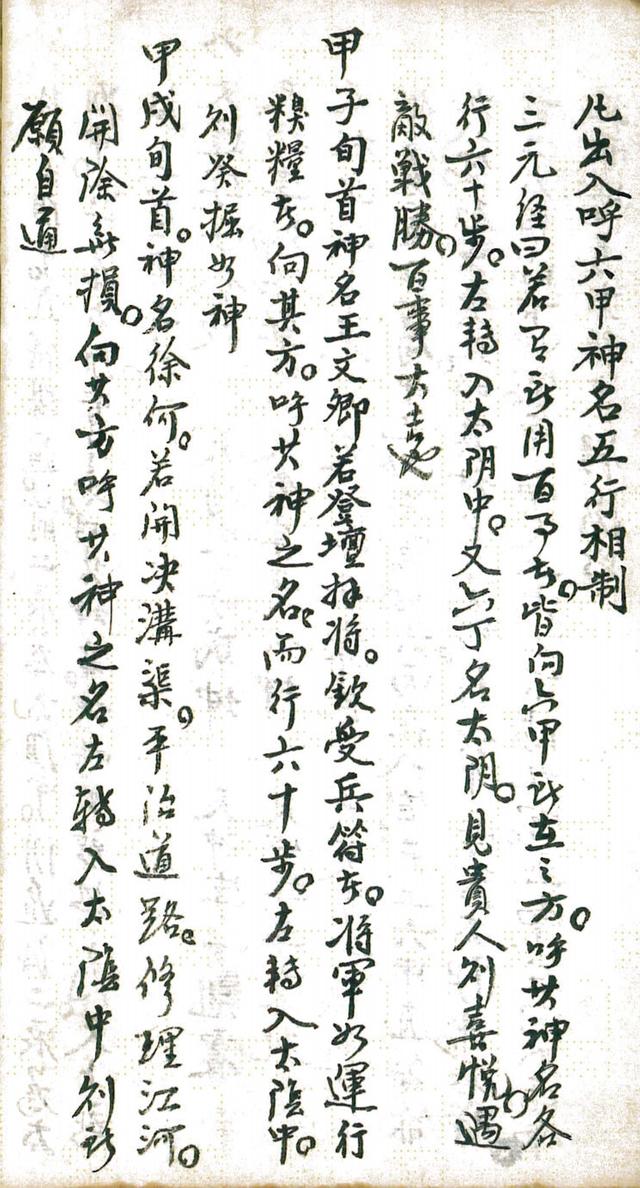 凡出入呼六甲神名五行相制
三元经曰若有所用百事者。皆向六甲所在之方。呼其神名各
行六十步。左转入太阴中。又六丁名太阴。见貴人则喜悦遇
敵戰勝。百事大吉也
甲子旬首神名王文卿若登壇拜将。欽受兵符者。将軍如運行
糗糧者。向其方。呼其神之名。而行六十步。左转入太陰中。
则癸掘如神
甲戌旬首。神名徐何。若開决溝渠。平治道路。修理江河。
開除無損。向其方呼其神之名左转入太陰中则所
願自通